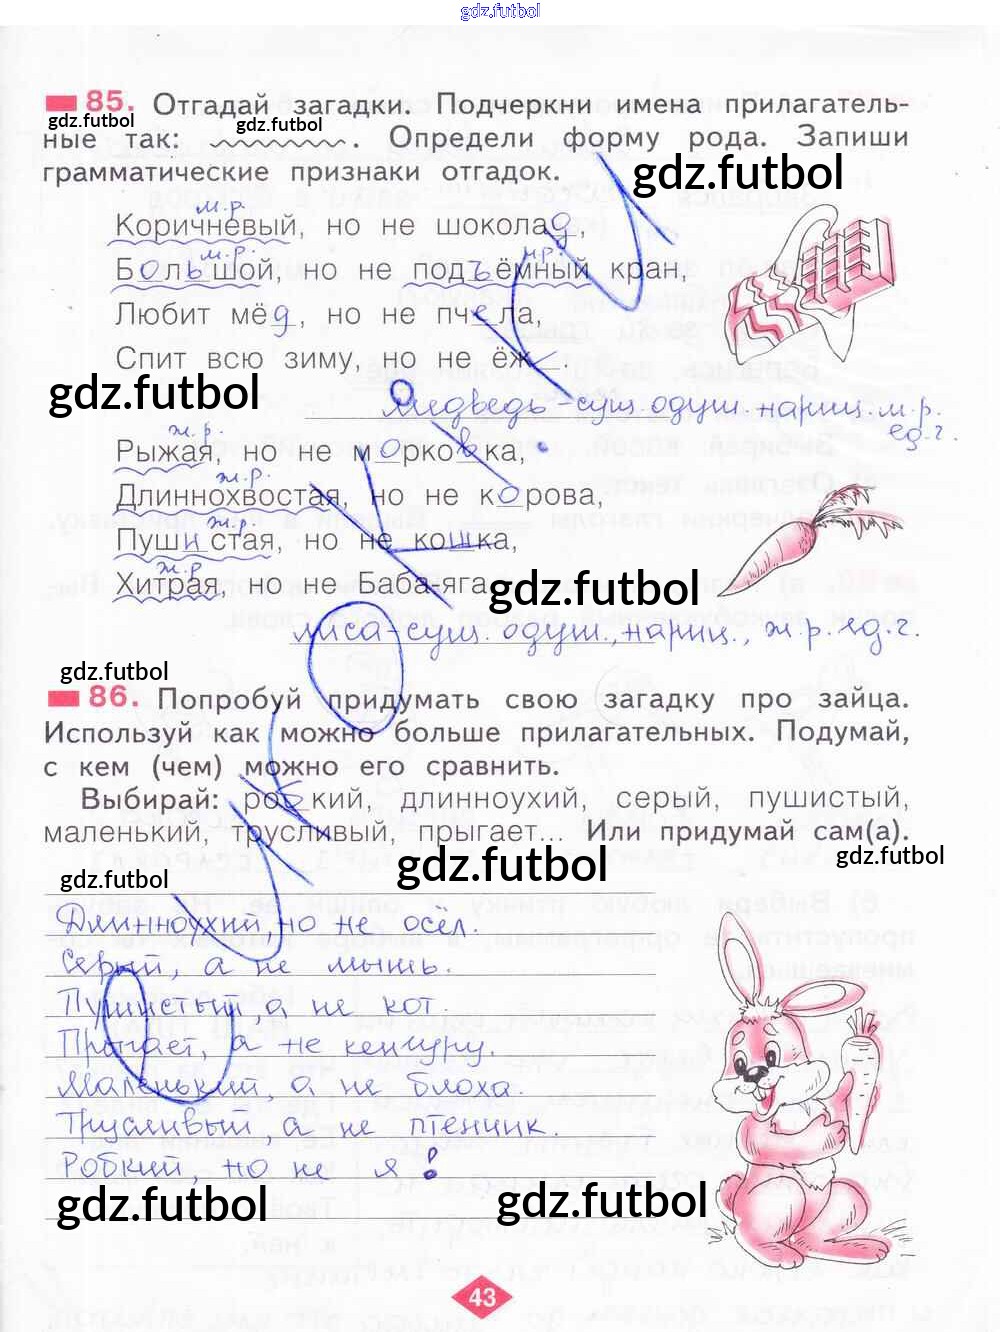 gdz.futbol
85. Отгадай загадки. Подчеркни имена прилагатель-
gdz.futbol
gdz.futbol
ные так: . Определи форму рода. Запиши
грамматические признаки отгадок.
gdz.futbol
м.р.
Коричневый, но не шоколад,
м.р. м.р.
Большой, но не подъёмный кран,
Любит мёд, но не пчела,
Спит всю зиму, но не ёж
gdz.futbol
медведь - сущ. одуш. нариц. м.р.
ед.ч.
ж.р.
Рыжая, но не морковка,
ж.р.
Длиннохвостая, но не корова,
ж.р.
Пушистая, но не кошка,
ж.р
Хитрая, но не Баба-яга.
gdz.futbol
лиса - сущ. одуш., нариц., ж.р. ед.ч.
gdz.futbol
86. Попробуй придумать свою загадку про зайца.
Используй как можно больше прилагательных. Подумай,
с кем (чем) можно его сравнить.
Выбирай: робкий, длинноухий, серый, пушистый,
маленький, трусливый, прыгает... Или придумай сам(а).
gdz.futbol
gdz.futbol
gdz.futbol
Длинноухий, но не осёл.
Серый, а не мышь.
Пушистый, а не кот
Прыгает, а не кенгуру.
Маленький, а не блоха.
Трусливый, а не птенчик.
Робкий, но не я!
gdz.futbol
gdz.futbol
43